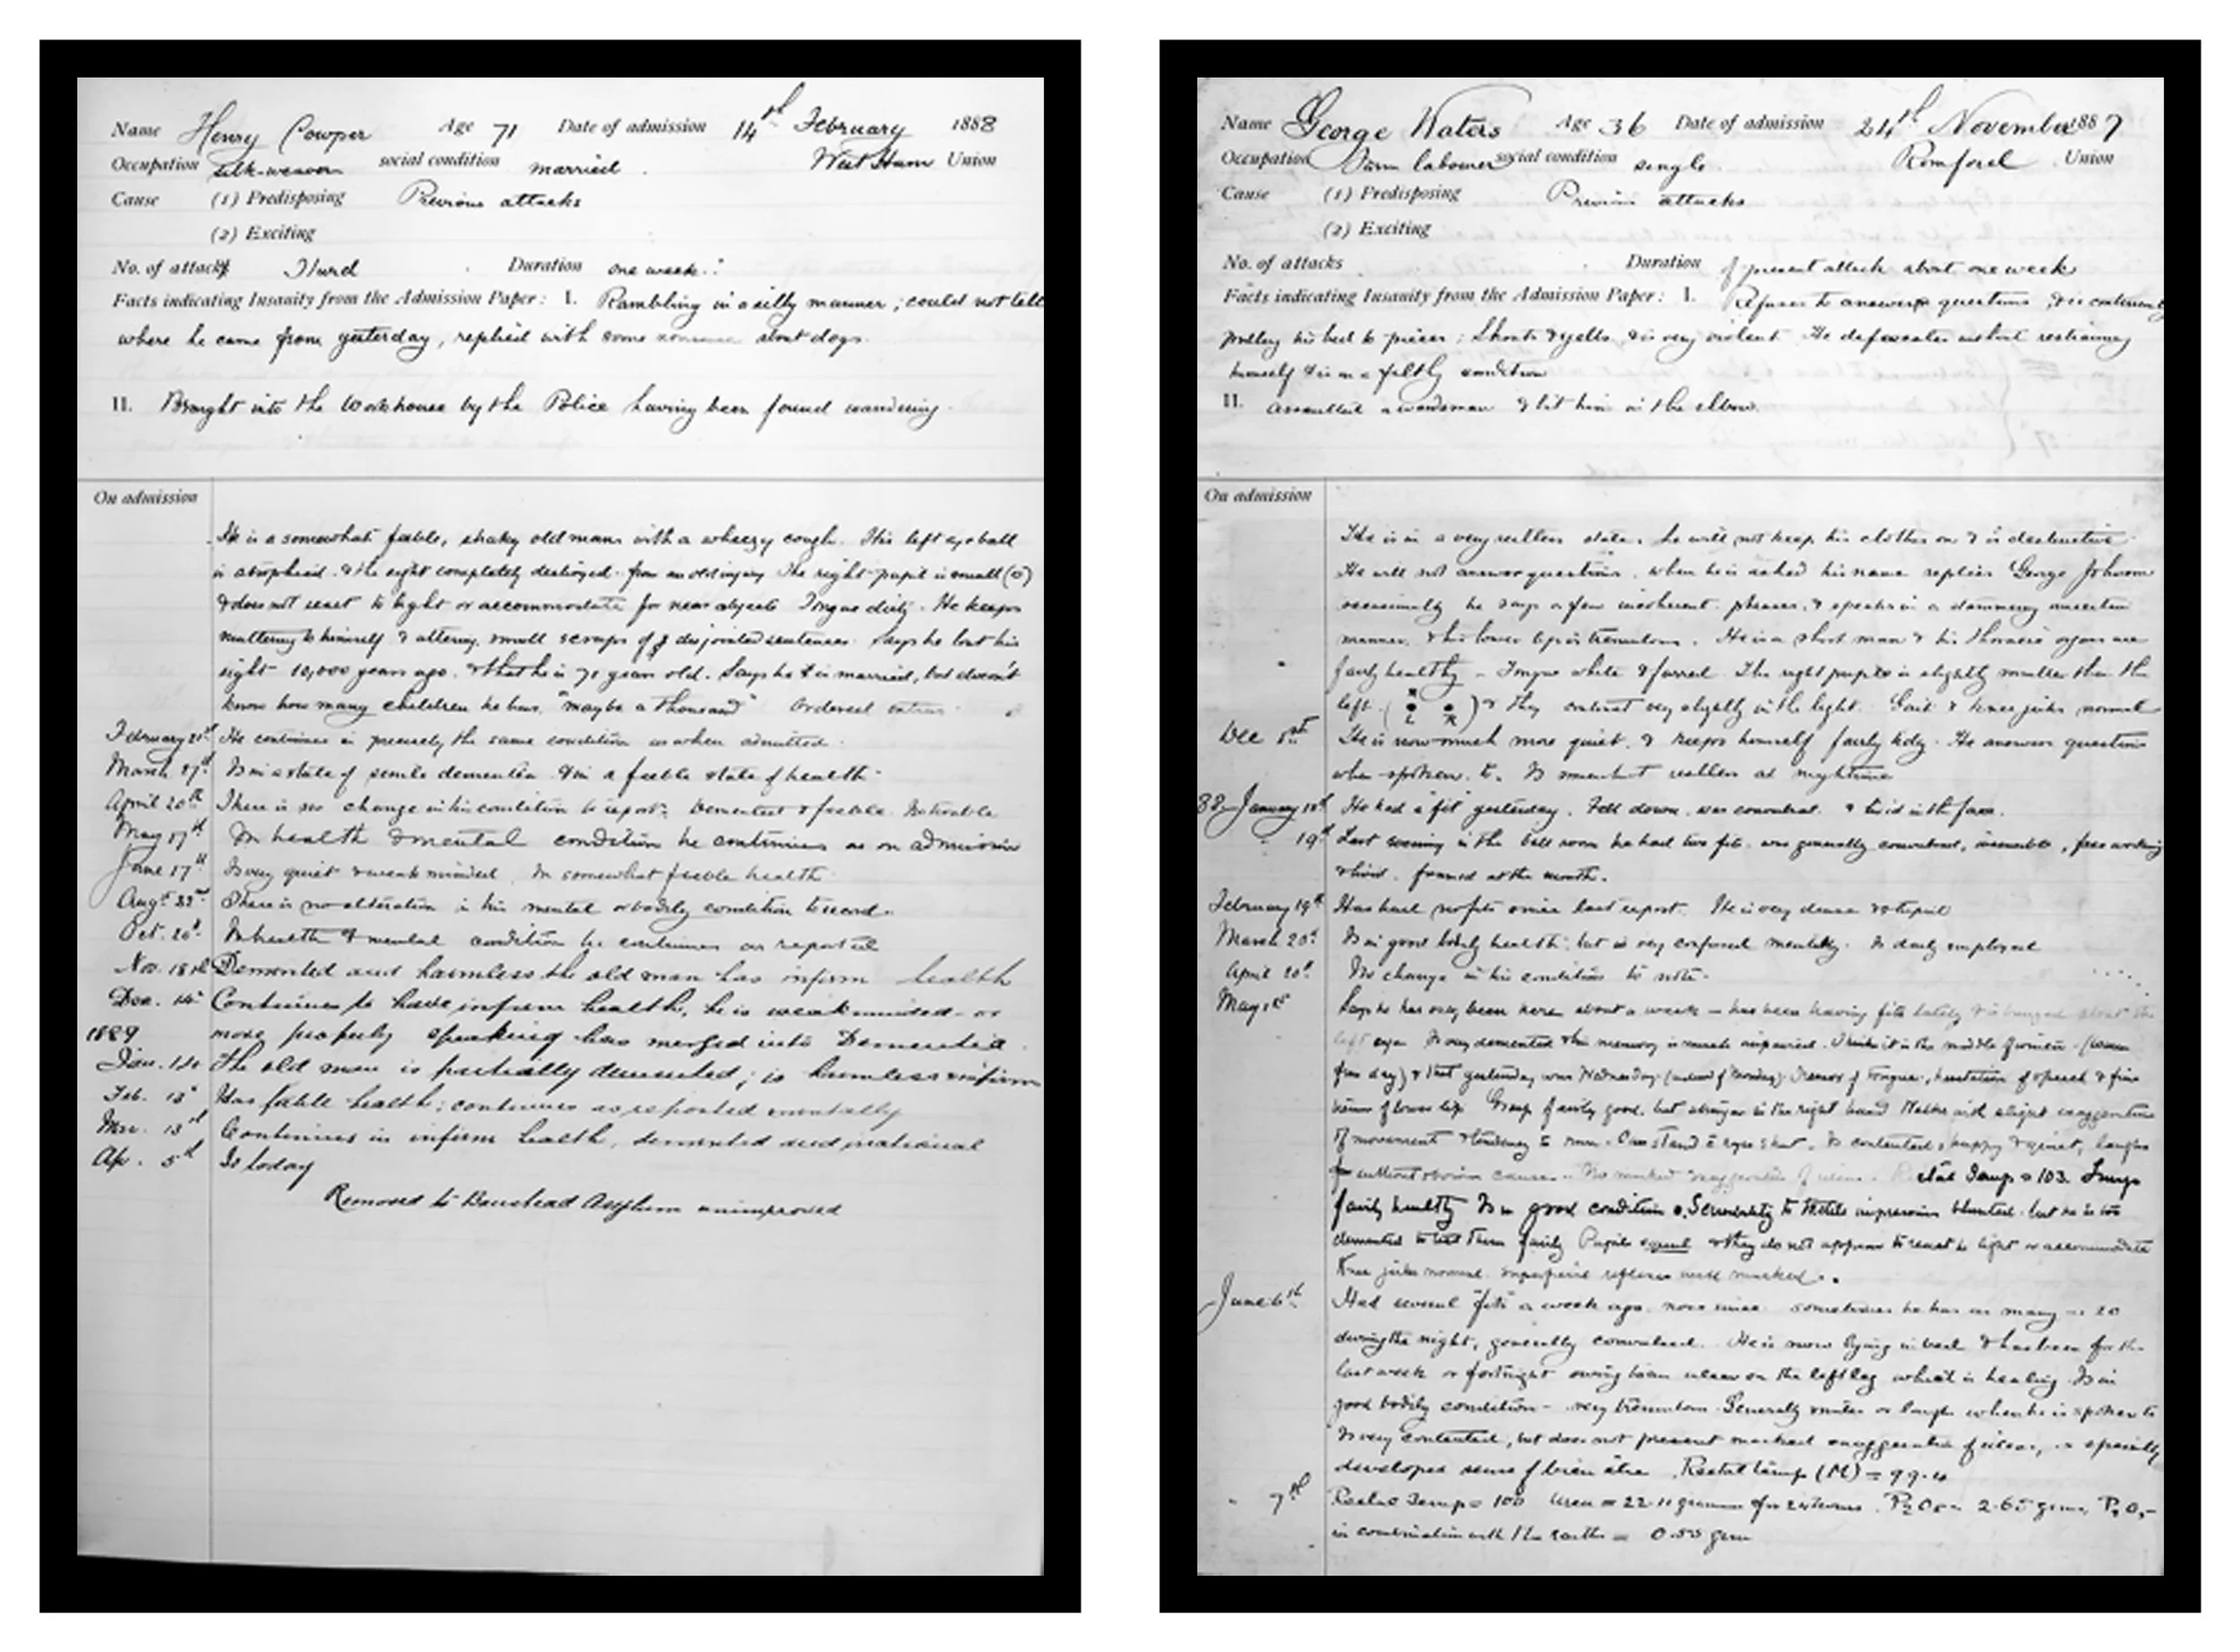 Name Henry Cowper Age 71 Date of admission 14th February 1888
Occupation Silk-weaver social condition married West Ham Union
Cause (1) Predisposing Previous attacks
(2) Exciting
No. of attacks Third Duration one week
Facts indicating Insanity from the Admission Paper: I. Rambling in a silly manner; could not tell
where he came from yesterday, replied with some nonsense about dogs.
II. Brought into the Workhouse by the Police having been found wandering.
On admission
He is a somewhat feeble, shaky old man with a wheezy cough. His left eyeball
is atrophied & the right completely destroyed from an old injury The right pupil is small (o)
& does not react to light or accommodate for near objects Tongue dirty. He keeps
muttering to himself & uttering small scraps of disjointed sentences. Says he lost his
sight 10,000 years ago, & that he is 71 years old. Says he is married, but doesn't
know how many children he has, "maybe a thousand" Ordered
February 21st He continues in precisely the same condition as when admitted.
March 27th Is in a state of senile dementia & in a feeble state of health.
April 20th There is no change in his condition to report. Demented & feeble.
May 17th In health & mental condition he continues as on admission
June 17th Is very quiet & weak minded. In somewhat feeble health
Augt. 22nd There is no alteration in his mental or bodily condition to record.
Oct. 20th In health & mental condition he continues as reported
Nov. 18th Demented and harmless the old man has infirm health
Dec. 14th Continues to have infirm health, he is weakminded - or
more properly speaking has merged into Dementia.
1889
Jan. 14 The old man is partially demented; is harmless & infirm
Feb. 13th Has feeble health; continues as reported mentally
Mar. 13th Continues in infirm health, demented and irrational
Ap. 5th Is today
Removed to Banstead Asylum unimproved
Name George Waters Age 36 Date of admission 24th November 1887
Occupation Farm labourer social condition single Romford Union
Cause (1) Predisposing Previous attacks
(2) Exciting
No. of attacks Duration of present attack about one week
Facts indicating Insanity from the Admission Paper: I. Refuses to answer questions, & is continually
pulling his bed to pieces; Shouts & yells & is very violent He defaecates without restraining
himself & is in a filthy condition
II. Assaulted a wardsman & bit him in the elbow.
On admission
He is in a very restless state, he will not keep his clothes on & is destructive
He will not answer questions, when he is asked his name replies George Johnson
occasionally he says a few incoherent phrases, & speaks in a stammering uncertain
manner, & his lower lip is tremulous. He is a short man & his thoracic organs are
fairly healthy - Tongue white & furred. The right pupil is slightly smaller than the
left (L R) & they contract very slightly in the light. Gait & knee jerks normal
Dec 1st He is now much more quiet, & keeps himself fairly tidy. He answers questions
when spoken to. Is somewhat restless at nighttime
88 January 18th He had a "fit" yesterday. Fell down, was convulsed & livid in the face.
19th Last evening in the ball room he had two fits was generally convulsed, insensible, face working
& livid, foamed at the mouth.
February 19th Has had no fits since last report. He is very dense & stupid
March 20th Is in good bodily health, but is very confused mentally. Is daily employed
April 20th No change in his condition to note.
May 15 Says he has only been here about a week - has been having fits lately & is bruised about the
left eye Is very demented & his memory is much impaired. Thinks it is the middle of winter
fine day) & that yesterday was Wednesday (instead of Monday) Tremor of tongue, hesitation of speech & fine
tremor of lower lip Grasp fairly good, but stronger in the right hand Walks with slight exaggeration
of movement & tendency to Can stand c̄ eyes shut. Is contented, happy & quiet, laughs
without obvious cause. No marked exaggeration of ideas. Rectal Temp = 103. Lungs
fairly healthy Is in good condition. Sensibility to tactile impressions blunted but he is too
demented to test them fairly Pupils equal & they do not appear to react to light or accommodate
Knee jerks normal superficial reflexes well marked.
June 6th Had several "fits" a week ago, none since sometimes he has as many as 20
during the night, generally convulsed. He is now lying in bed & has been for the
last week or fortnight owing to an ulcer on the left leg which is healing Is in
good bodily condition - very tremulous Generally smiles or laughs when he is spoken to
Is very contented, but does not present marked exaggeration of ideas, or specially
developed sense of bien être Rectal temp (M) = 99.4
" 7th Rectal Temp = 100 Urea = 22.11 grammes for 24 hours. P2O5 = 2.65 grms, P2O5
in combination with the earths = 0.55 grm